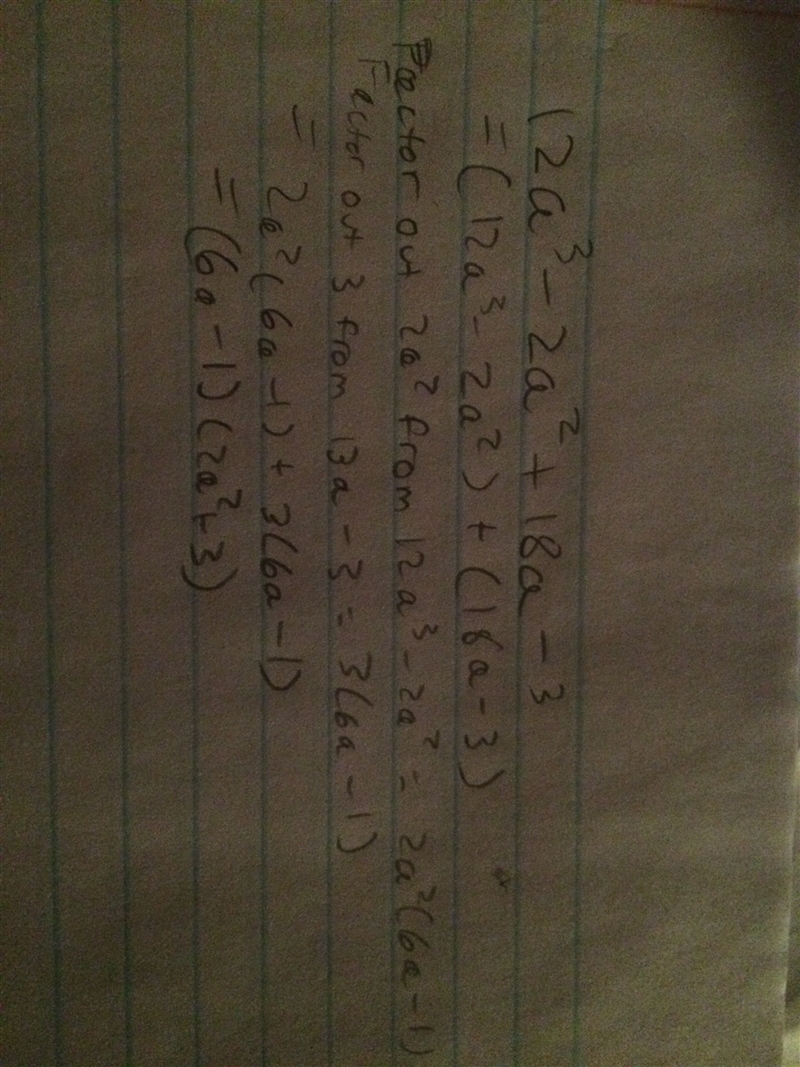 12a³ - 2a² + 18a - 3
= (12a³ - 2a²) + (18a - 3)
Factor out 2a² from 12a³ - 2a² = 2a²(6a - 1)
Factor out 3 from 13a - 3 = 3(6a - 1)
= 2a²(6a - 1) + 3(6a - 1)
= (6a - 1)(2a² + 3)